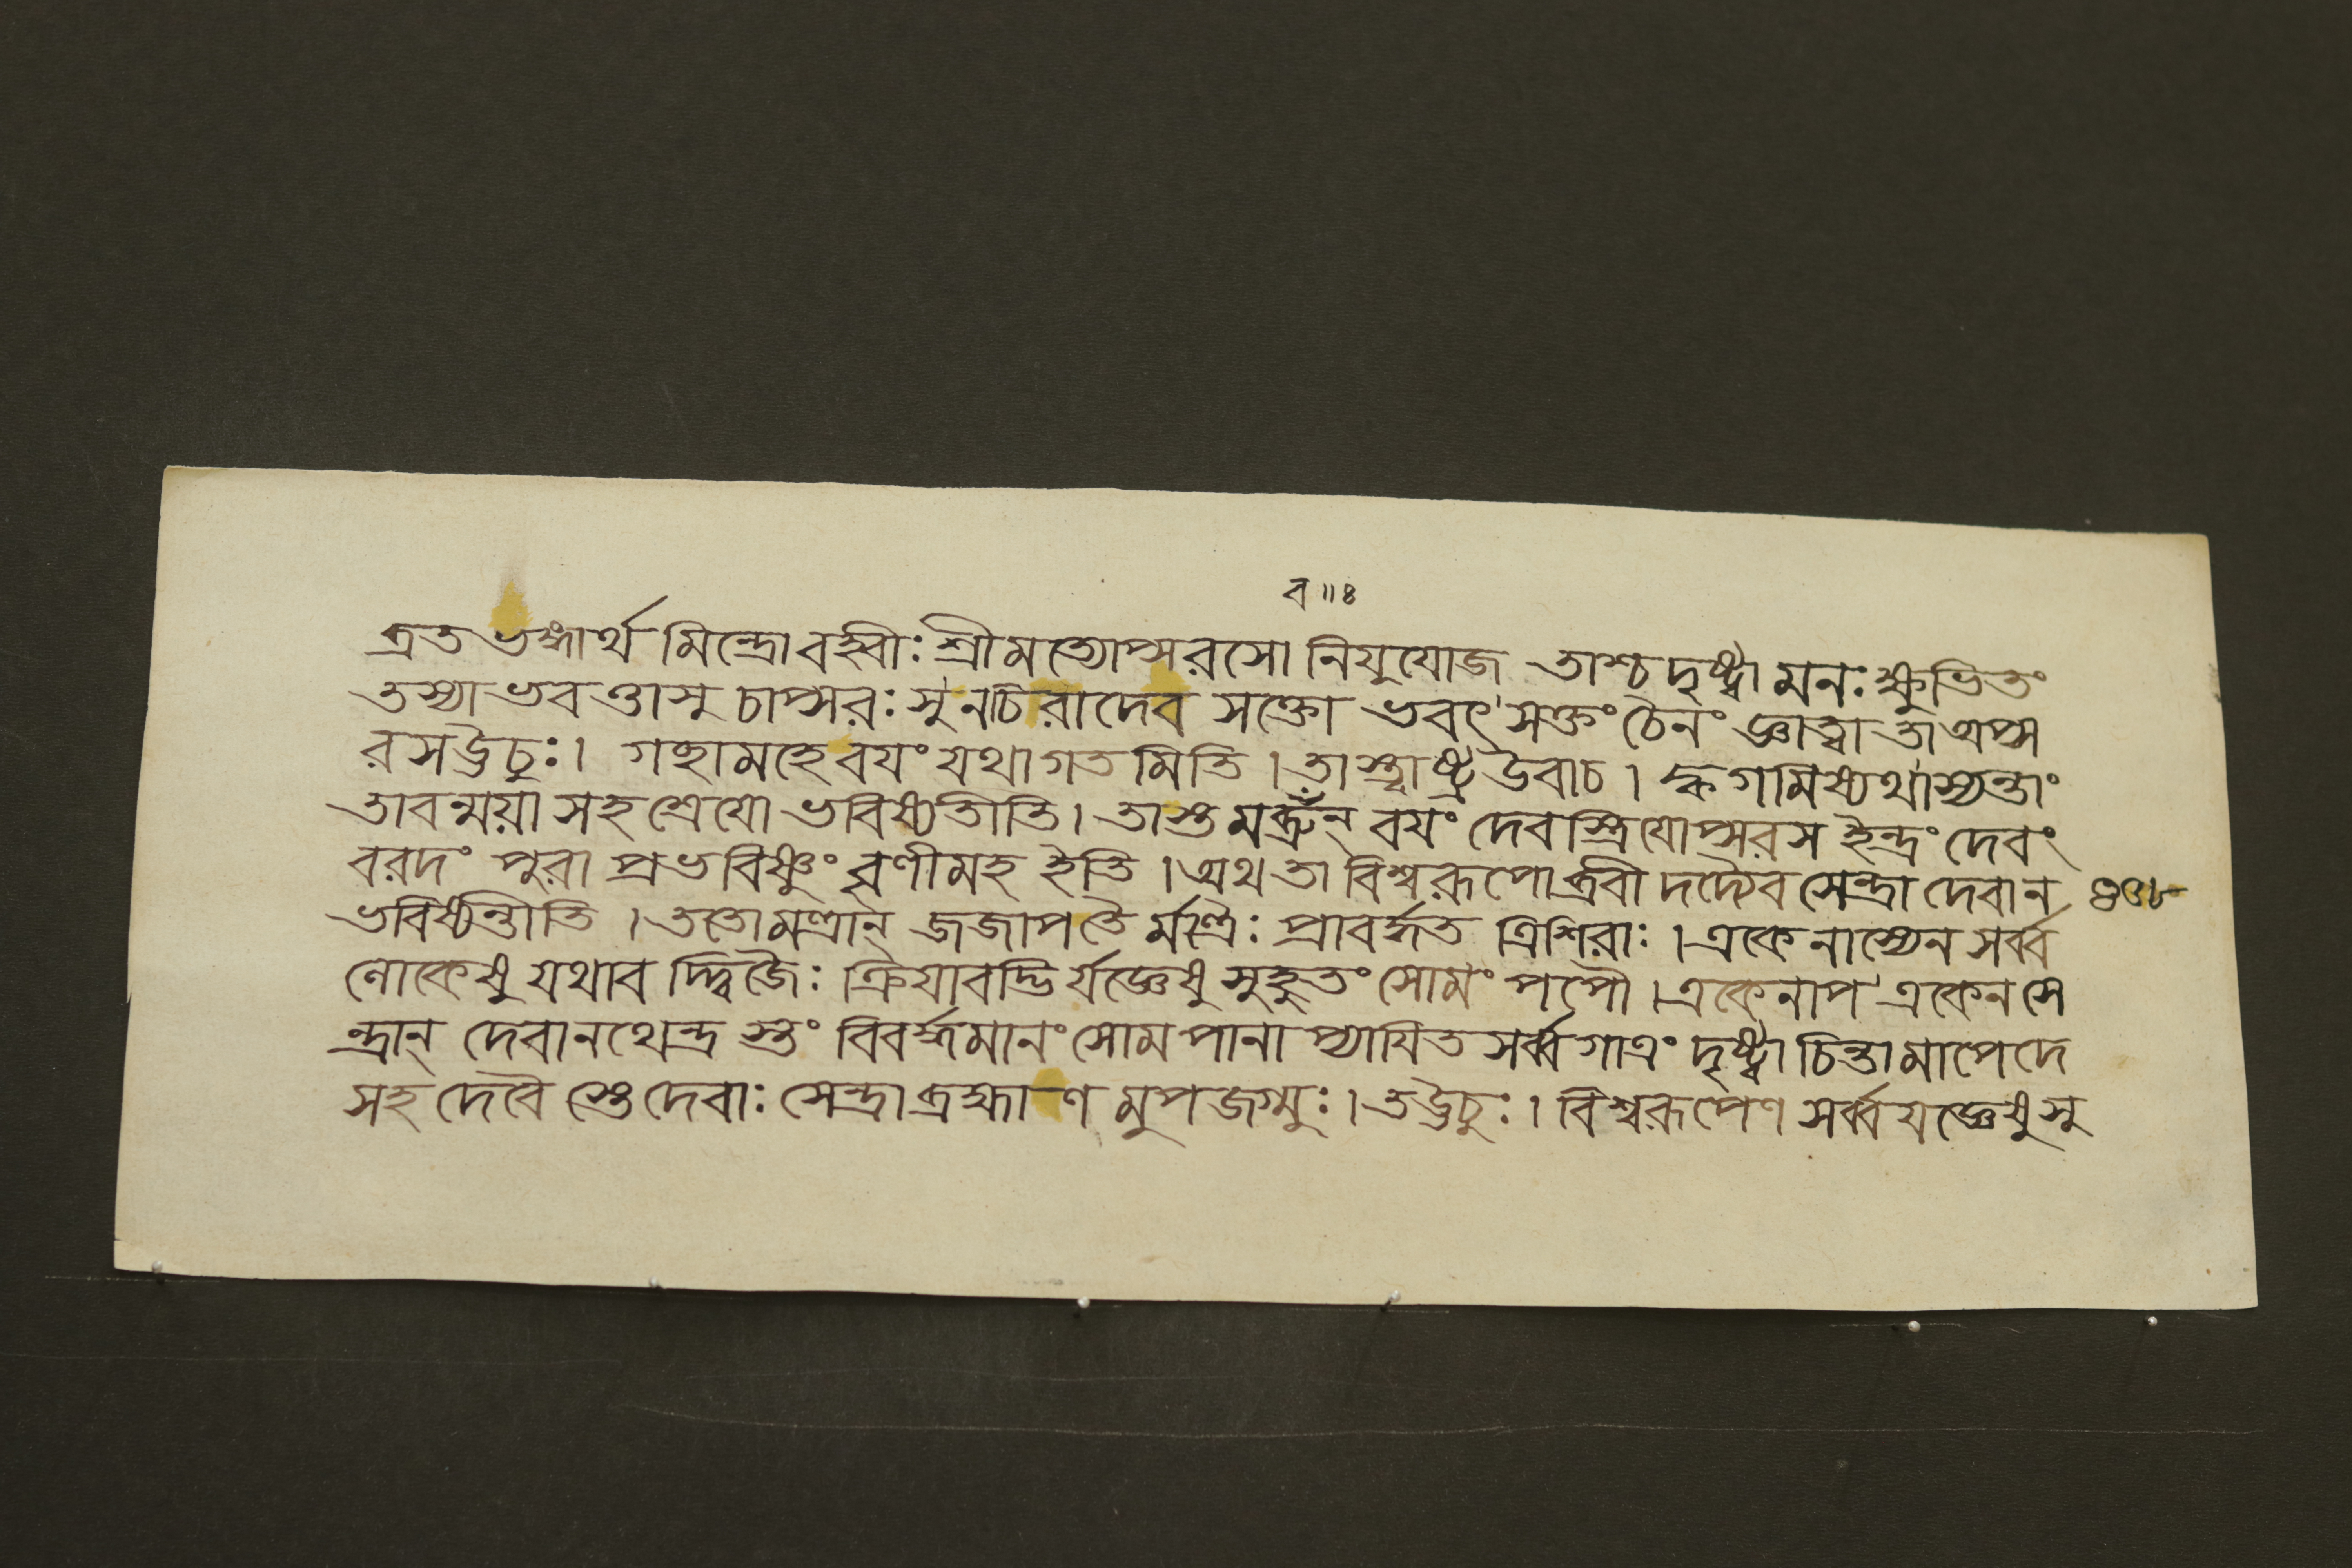 ব॥৪
ব্রতভঙ্গার্থমিন্দ্রোবহ্বীঃশ্রীমত্যোপ্সরসোনিযুযোজ তাশ্চদৃষ্ট্বামনঃক্ষুভিতং
তস্যাভবত্তাসুচাপ্সরঃসুনচিরাদেব সক্তোভবৎসক্তংচৈনংজ্ঞাত্বাতাঅপ্স
রসঊচুঃ। গচ্ছামহেবযংযথাগতমিতি।তাস্ত্বাষ্ট্রউবাচ।ক্বগমিষ্যথাস্যন্তাং
তাবন্ময়াসহশ্রেযোভবিষ্যতীতি।তাস্তমব্রুঁন্ বযংদেবস্ত্রিযোপ্সরসইন্দ্রংদেবং
বরদং পুরাপ্রভবিষ্ণুংবৃণীমহইতি।অথতাবিশ্বরূপোব্রবীদদ্যৈবসেন্দ্রাদেবান ৪৩৮
ভবিষ্যন্তীতি।ততোমন্ত্রান্ জজাপতৈর্মন্ত্রৈঃপ্রাবর্দ্ধতত্রিশিরাঃ।একেনাস্যেনসর্ব্ব
লোকেষুযথাবদ্দ্বিজৈঃক্রিযাবদ্ভির্যজ্ঞেষুসুহুতংসোমংপপৌ।একেনাপএকেনসে
ন্দ্রান্ দেবানথেন্দ্রস্তংবিবর্দ্ধমানংসোমপানাপ্যাযিতসর্ব্বগাত্রংদৃষ্ট্বাচিন্তামাপেদে
সহদেবৈস্তেদেবাঃসেন্দ্রাব্রহ্মাণমুপজগ্মুঃ।তঊচুঃ।বিশ্বরূপেণসর্ব্বযজ্ঞেষুসু